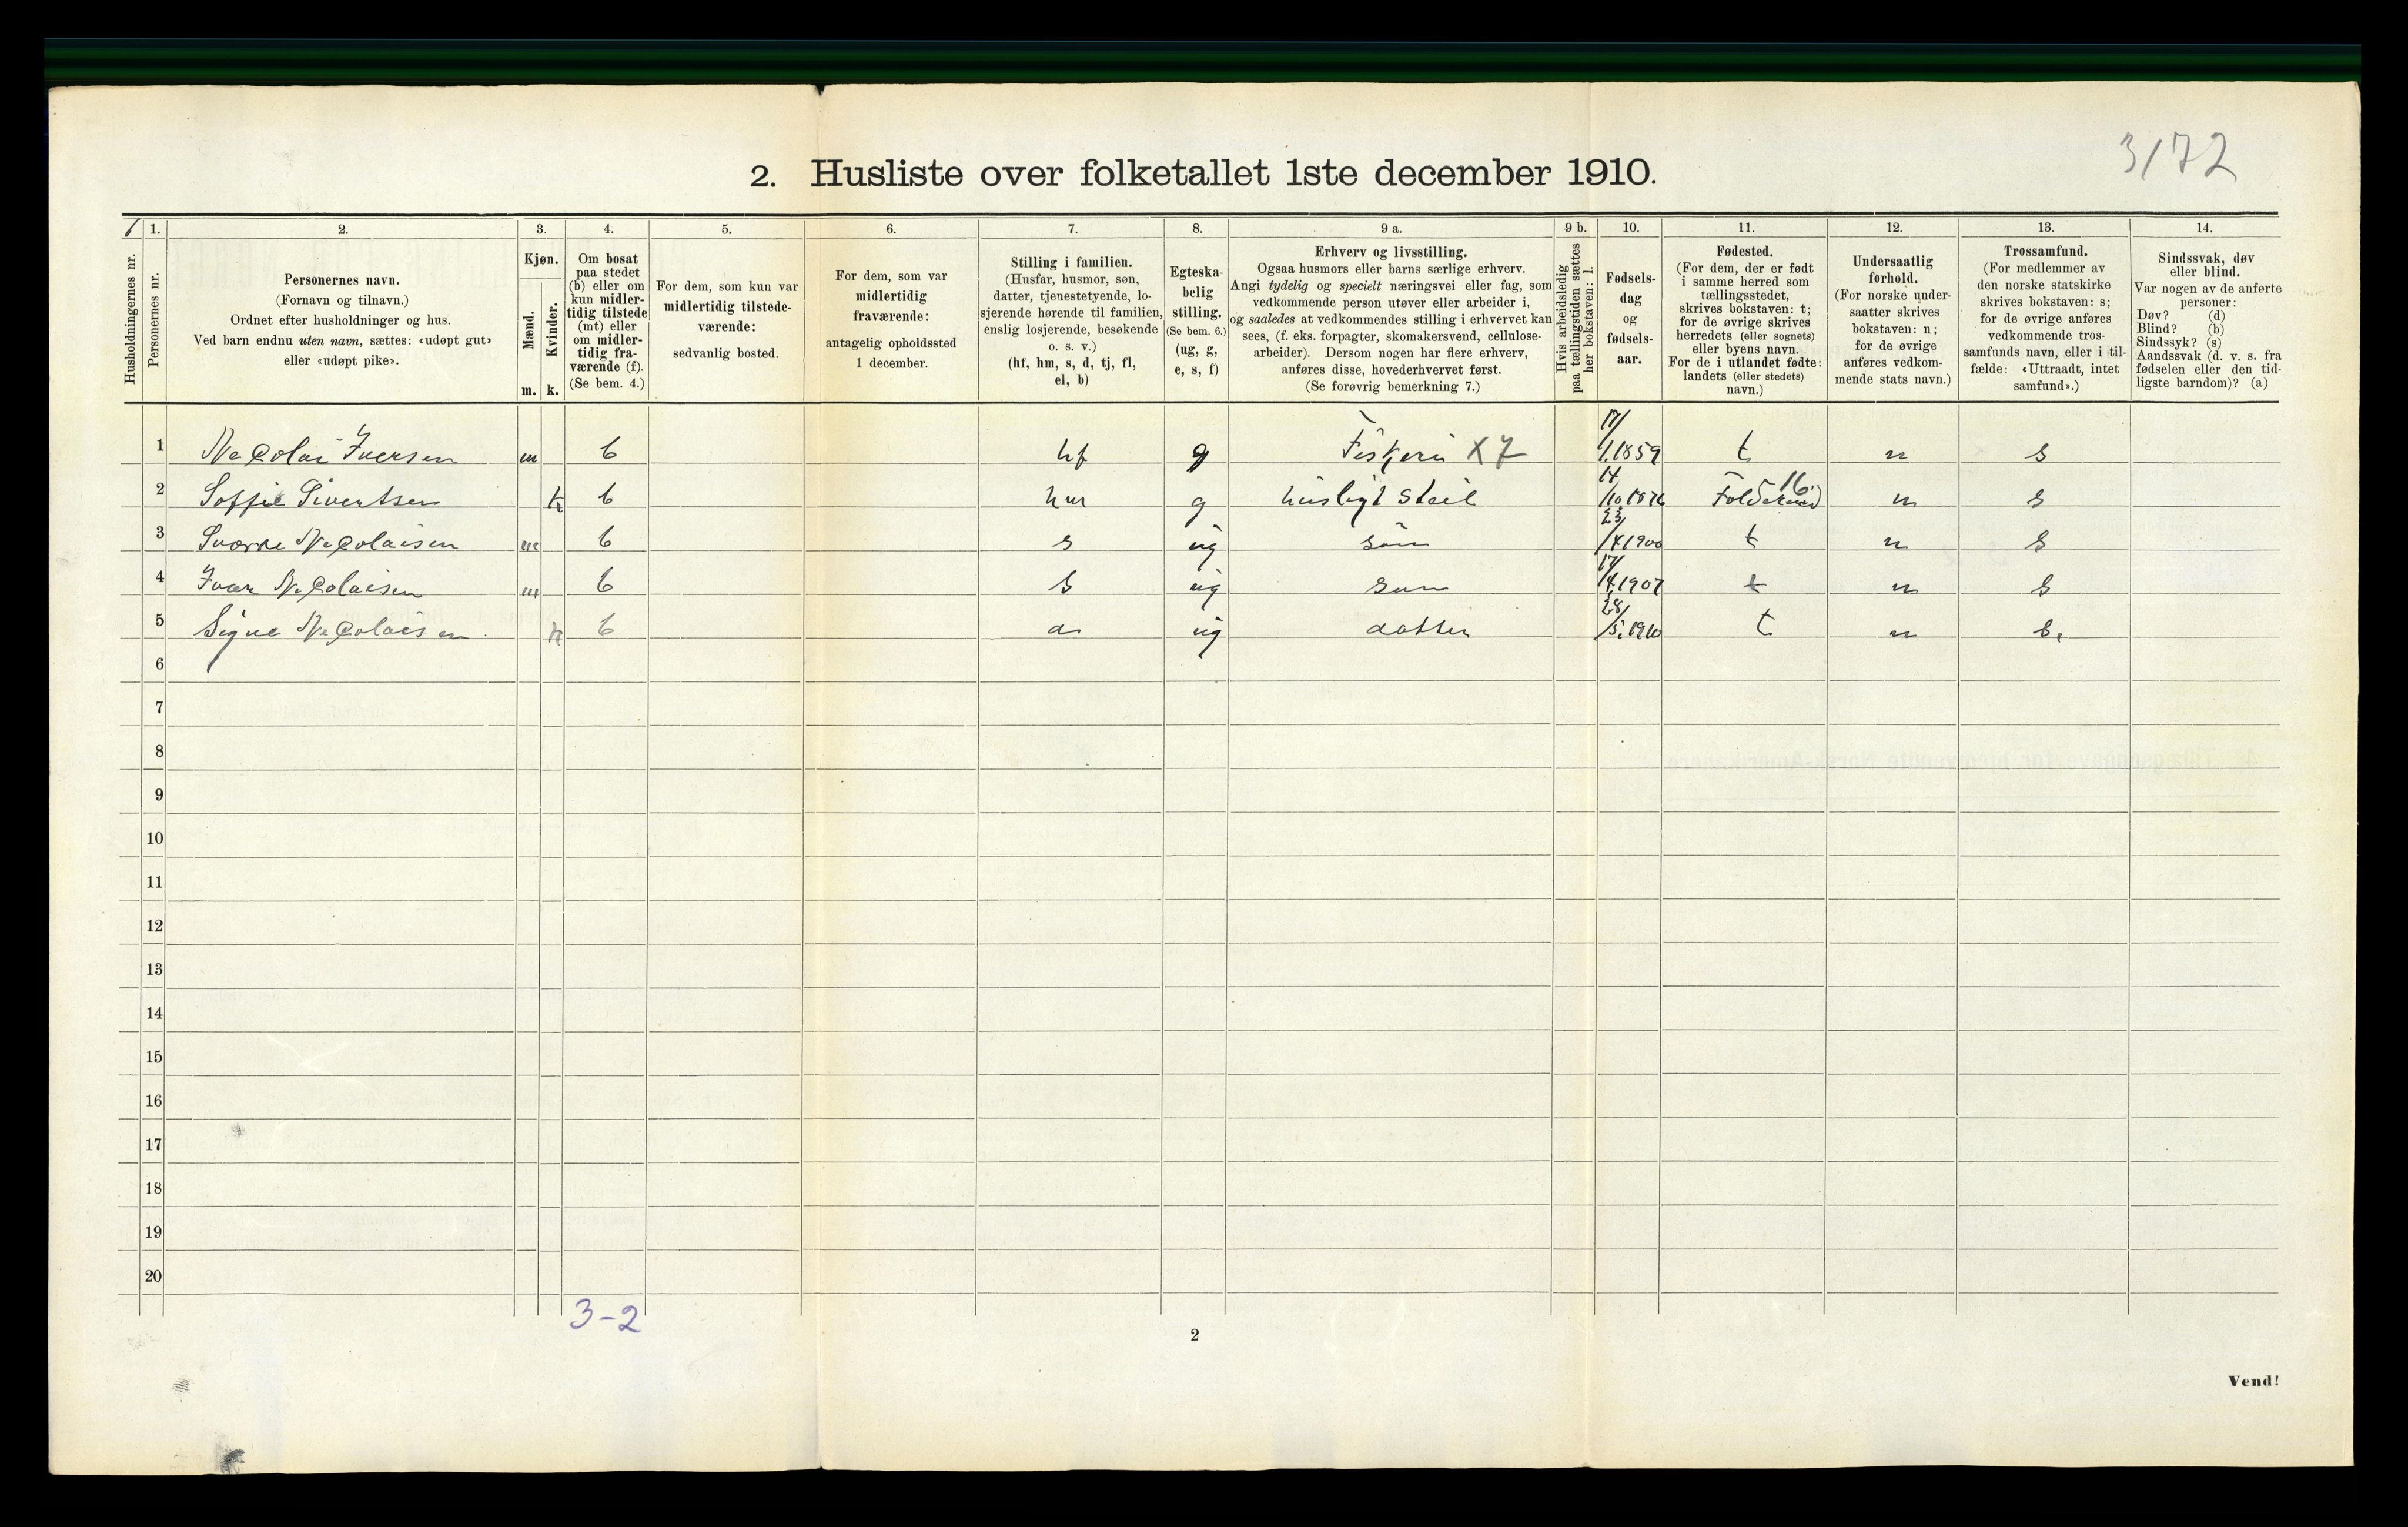 3/72
2. Husliste over folketallet 1ste december 1910.
1. 2. 3. 4. 5. 6. 7. 8. 9 a. 9 b. 10. 11. 12. 13. 14.
Husholdningernes nr.
Personernes nr.
Personernes navn.
(Fornavn og tilnavn.)
Ordnet efter husholdninger og hus.
Ved barn endnu uten navn, sættes: «udøpt gut»
eller «udøpt pike».
Kjøn.
Mænd.
Kvinder.
m. k.
Om bosat
paa stedet
(b) eller om
kun midler-
tidig tilstede
(mt) eller
om midler-
tidig fra-
værende (f).
(Se bem. 4.)
For dem, som kun var
midlertidig tilstede-
værende:
sedvanlig bosted.
For dem, som var
midlertidig
fraværende:
antagelig opholdssted
1 december.
Stilling i familien.
(Husfar, husmor, søn,
datter, tjenestetyende, lo-
sjerende hørende til familien,
enslig losjerende, besøkende
o. s. v.)
(hf, hm, s, d, tj, fl,
el, b)
Egteska-
belig
stilling.
(Se bem. 6.)
(ug, g,
e, s, f)
Erhverv og livsstilling.
Ogsaa husmors eller barns særlige erhverv.
Angi tydelig og specielt næringsvei eller fag, som
vedkommende person utøver eller arbeider i,
og saaledes at vedkommendes stilling i erhvervet kan
sees, (f. eks. forpagter, skomakersvend, cellulose-
arbeider). Dersom nogen har flere erhverv,
anføres disse, hovederhvervet først.
(Se forøvrig bemerkning 7.)
Hvis arbeidsledig
paa tællingstiden sættes
her bokstaven: l.
Fødsels-
dag
og
fødsels-
aar.
Fødested.
(For dem, der er født
i samme herred som
tællingsstedet,
skrives bokstaven: t;
for de øvrige skrives
herredets (eller sognets)
eller byens navn.
For de i utlandet fødte:
landets (eller stedets)
navn.)
Undersaatlig
forhold.
(For norske under-
saatter skrives
bokstaven: n;
for de øvrige
anføres vedkom-
mende stats navn.)
Trossamfund.
(For medlemmer av
den norske statskirke
skrives bokstaven: s;
for de øvrige anføres
vedkommende tros-
samfunds navn, eller i til-
fælde: «Uttraadt, intet
samfund».)
Sindssvak, døv
eller blind.
Var nogen av de anførte
personer:
Døv? (d)
Blind? (b)
Sindssyk? (s)
Aandssvak (d. v. s. fra
fødselen eller den tid-
ligste barndom)? (a)
1 Nicolai Iversen m b hf g Fiskeri X 7 17/1.1859 t n s
2 Soffie Sivertsen k b hm g husligt Steil 14/10 1876 16 n s
3 Sverre Nicolaisen m b s ug søn 23/4.1900 t n s
4 Ivar Nicolaisen m b s ug søn 17/4.1907 t n s
5 Signe Nicolaisen k b d ug datter 28/5.1910 t n s.
6
7
8
9
10
11
12
13
14
15
16
17
18
19
20
3-2
2
Vend!